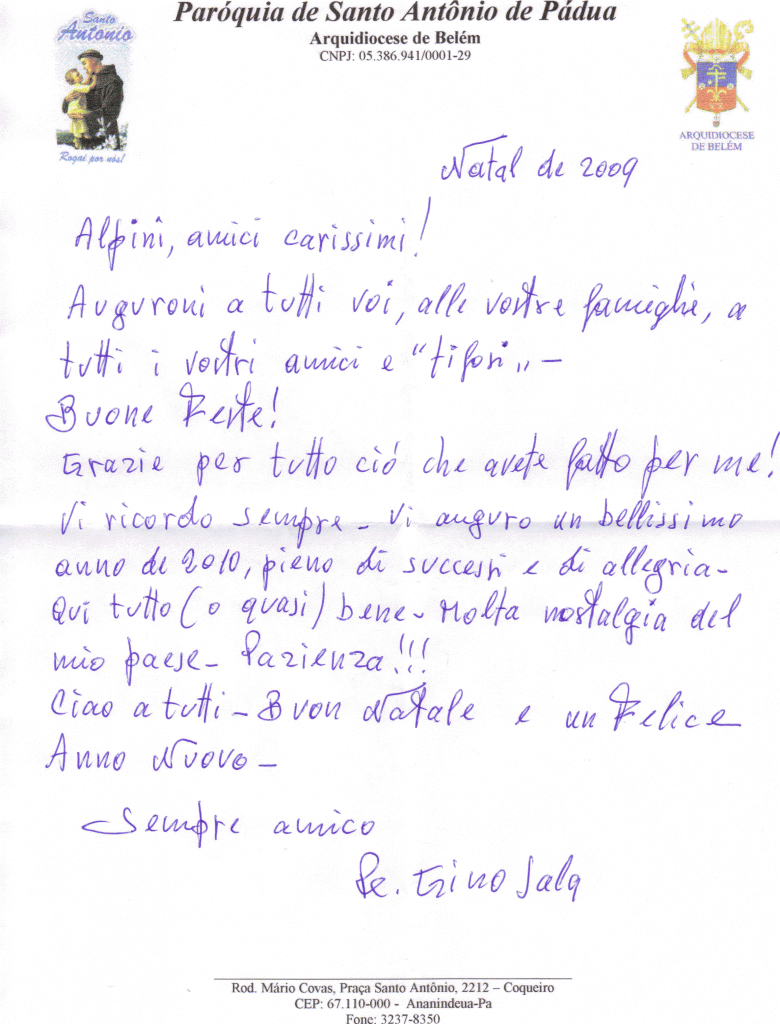 Paróquia de Santo Antônio de Pádua
Arquidiocese de Belém
CNPJ: 05.386.941/0001-29
Santo
Antonio
Rogai por nós!
ARQUIDIOCESE
DE BELÉM
Natal de 2009
Alpini, amici carissimi!
Auguroni a tutti voi, alle vostre famiglie, a
tutti i vostri amici e "tifosi" –
Buone Feste!
Grazie per tutto ció che avete fatto per me!
Vi ricordo sempre – Vi auguro un bellissimo
anno de 2010, pieno di successi e di allegria –
Qui tutto (o quasi) bene – Molta nostalgia del
mio paese – Pazienza!!!
Ciao a tutti – Buon Natale e un Felice
Anno Nuovo –
Sempre amico
Pe. Gino Sala
Rod. Mário Covas, Praça Santo Antônio, 2212 – Coqueiro
CEP: 67.110-000 - Ananindeua-Pa
Fone: 3237-8350